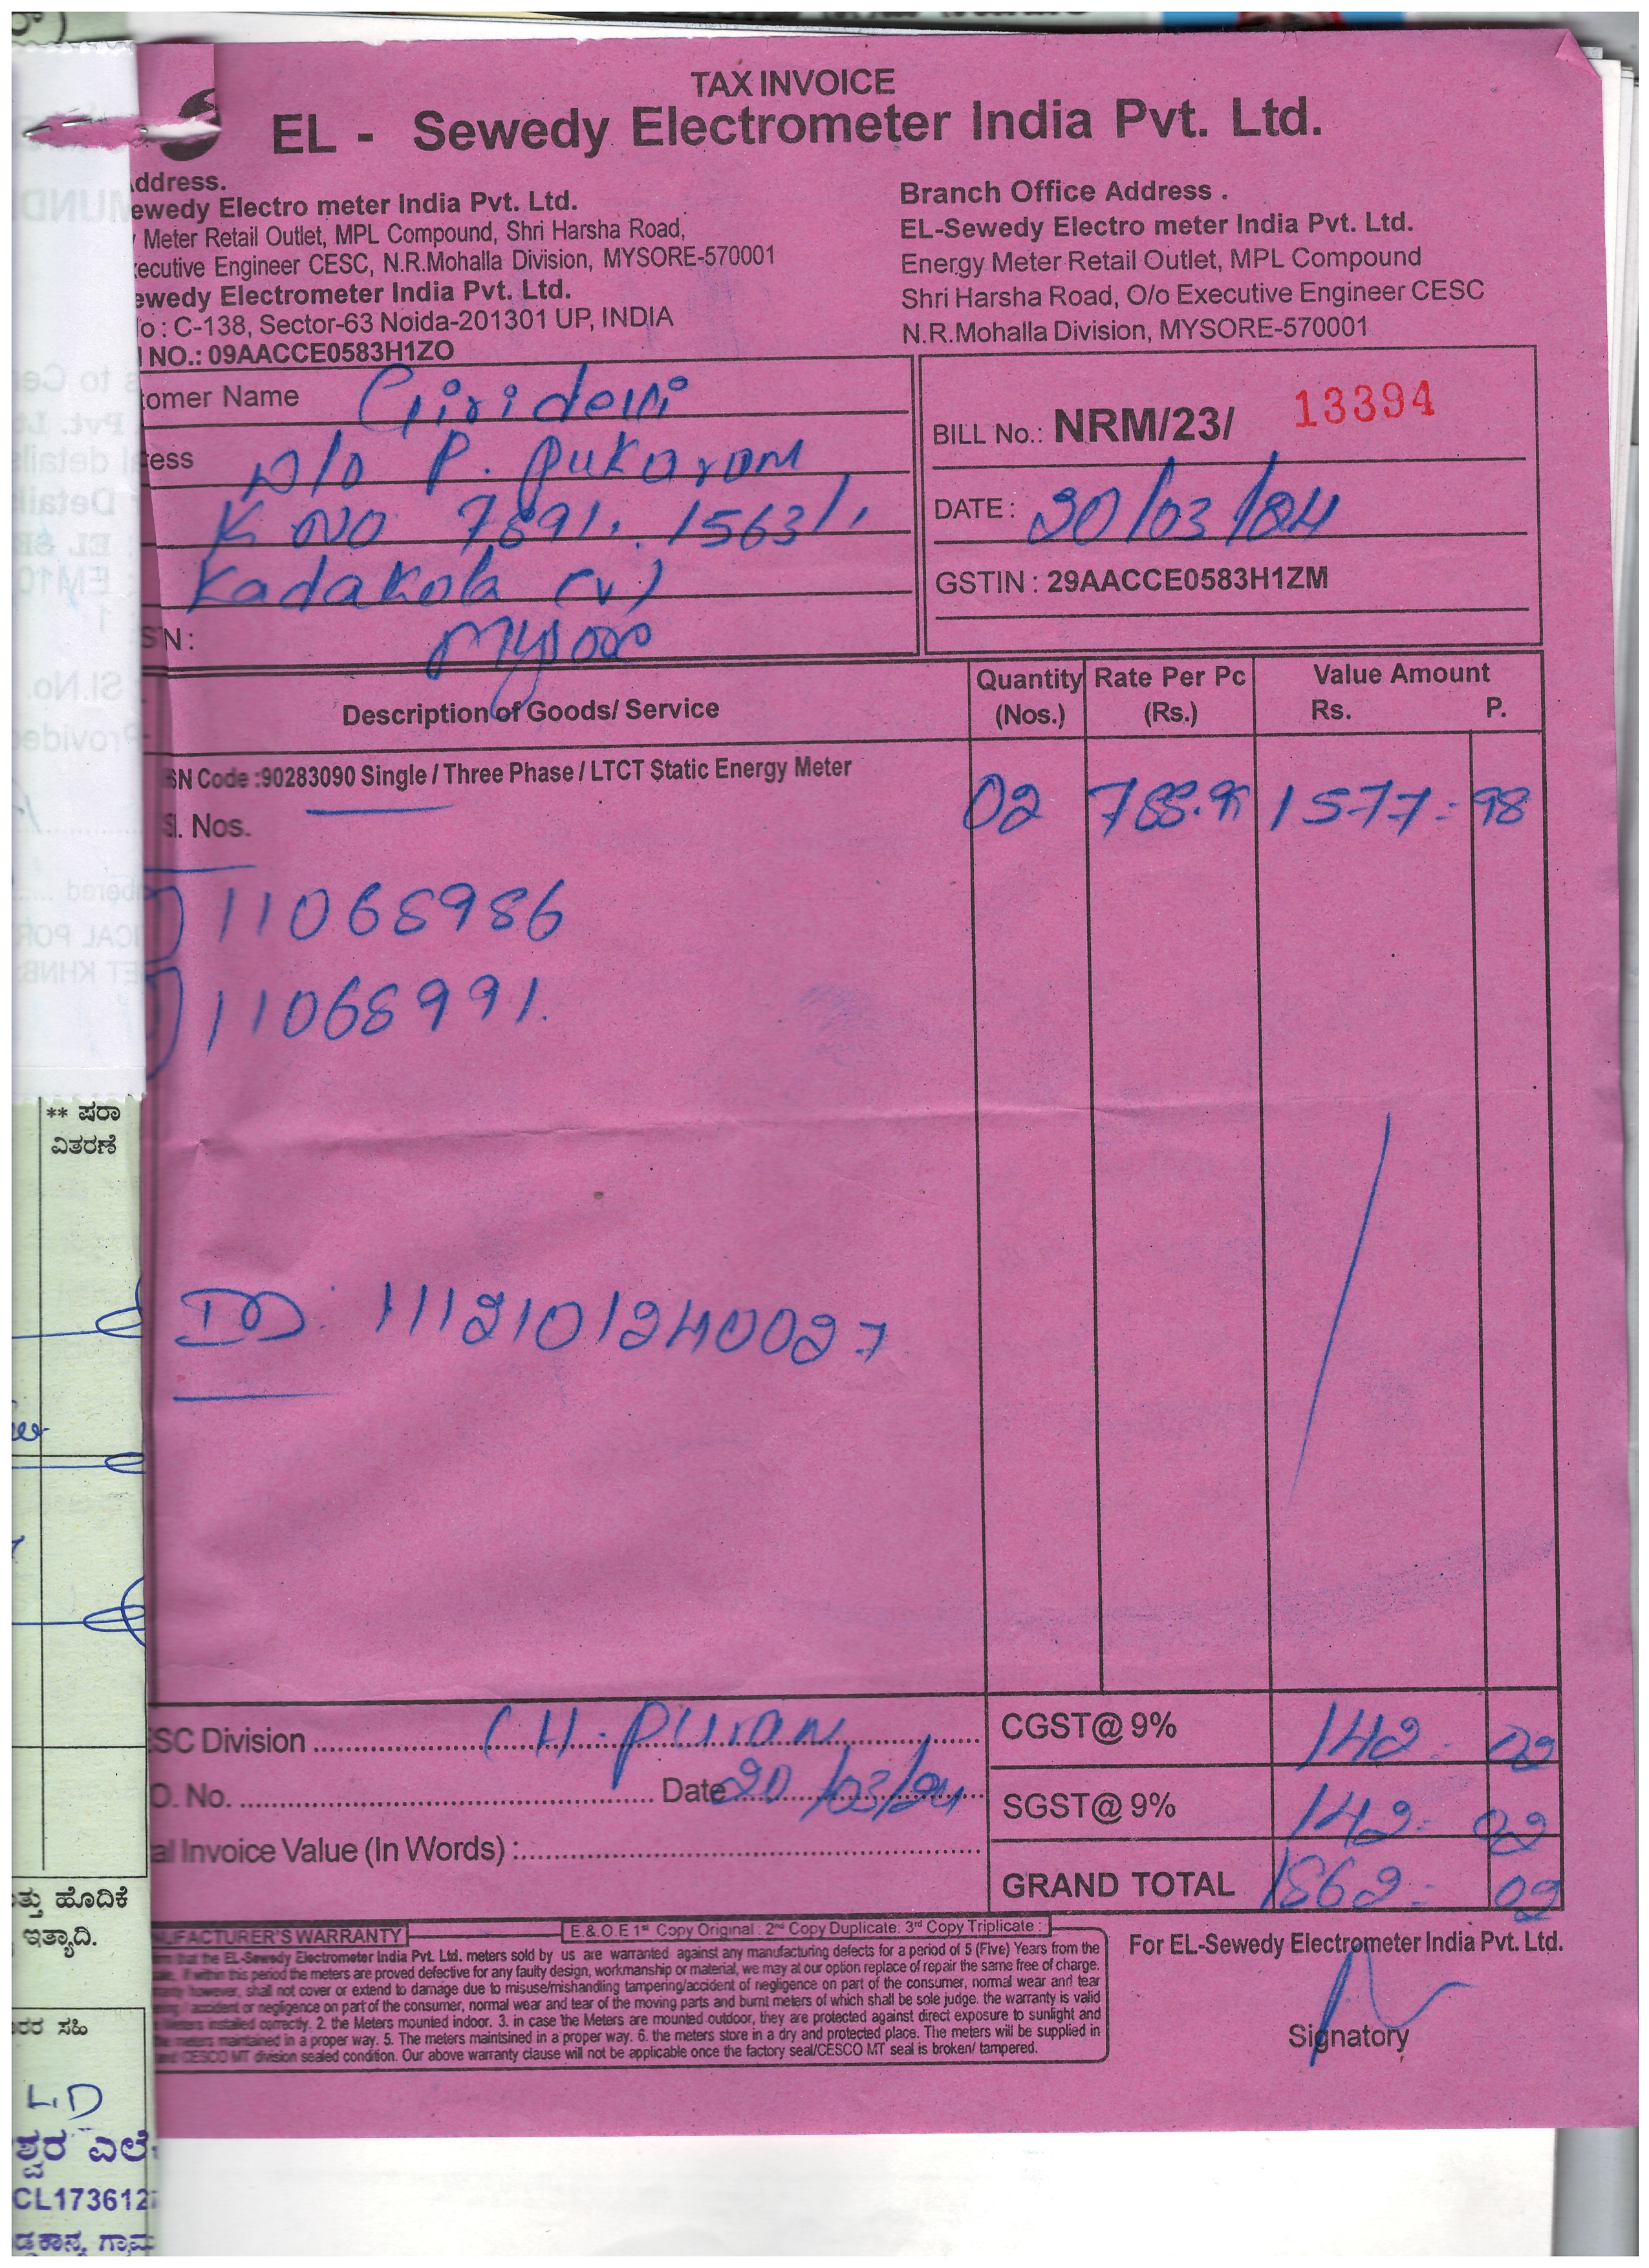 TAX INVOICE
EL - Sewedy Electrometer India Pvt. Ltd.
ddress.
ewedy Electro meter India Pvt. Ltd.
Meter Retail Outlet, MPL Compound, Shri Harsha Road,
ecutive Engineer CESC, N.R.Mohalla Division, MYSORE-570001
ewedy Electrometer India Pvt. Ltd.
o : C-138, Sector-63 Noida-201301 UP, INDIA
NO.: 09AACCE0583H1ZO
Branch Office Address .
EL-Sewedy Electro meter India Pvt. Ltd.
Energy Meter Retail Outlet, MPL Compound
Shri Harsha Road, O/o Executive Engineer CESC
N.R.Mohalla Division, MYSORE-570001
tomer Name Giridevi
ess P.
K NO 7891/. 1563/,
Kadakola (v)
SN: Mysore
BILL No.: NRM/23/ 13394
DATE : 20/03/24
GSTIN : 29AACCE0583H1ZM
Description of Goods/ Service Quantity (Nos.) Rate Per Pc (Rs.) Value Amount Rs. P.
SN Code :90283090 Single / Three Phase / LTCT Static Energy Meter
02 788.99 1577=98
Sl. Nos.
11068986
11068991.
DD: 1112101240027
SC Division CH. PURAM
O. No. Date 20/03/24
al Invoice Value (In Words) :
CGST@ 9% 142= 02
SGST@ 9% 142= 02
GRAND TOTAL 1862= 02
UFACTURER'S WARRANTY
E.& O.E 1st Copy Original : 2nd Copy Duplicate: 3rd Copy Triplicate :
that the EL-Sewedy Electrometer India Pvt. Ltd. meters sold by us are warranted against any manufacturing defects for a period of 5 (Five) Years from the
If within this period the meters are proved defective for any faulty design, workmanship or material, we may at our option replace of repair the same free of charge.
however, shall not cover or extend to damage due to misuse/mishandling tampering/accident of negligence on part of the consumer, normal wear and tear
accident or negligence on part of the consumer, normal wear and tear of the moving parts and burnt meters of which shall be sole judge. the warranty is valid
Meters installed correctly. 2. the Meters mounted indoor. 3. in case the Meters are mounted outdoor, they are protected against direct exposure to sunlight and
the meters maintained in a proper way. 5. The meters maintsined in a proper way. 6. the meters store in a dry and protected place. The meters will be supplied in
CESCO MT division sealed condition. Our above warranty clause will not be applicable once the factory seal/CESCO MT seal is broken/ tampered.
For EL-Sewedy Electrometer India Pvt. Ltd.
Signatory
** ಪರಾ
ವಿತರಣೆ
ತ್ತು ಹೊದಿಕೆ
ಇತ್ಯಾದಿ.
ರರ ಸಹಿ
L.D
ಶ್ವರ ಎಲೆ
CL173612